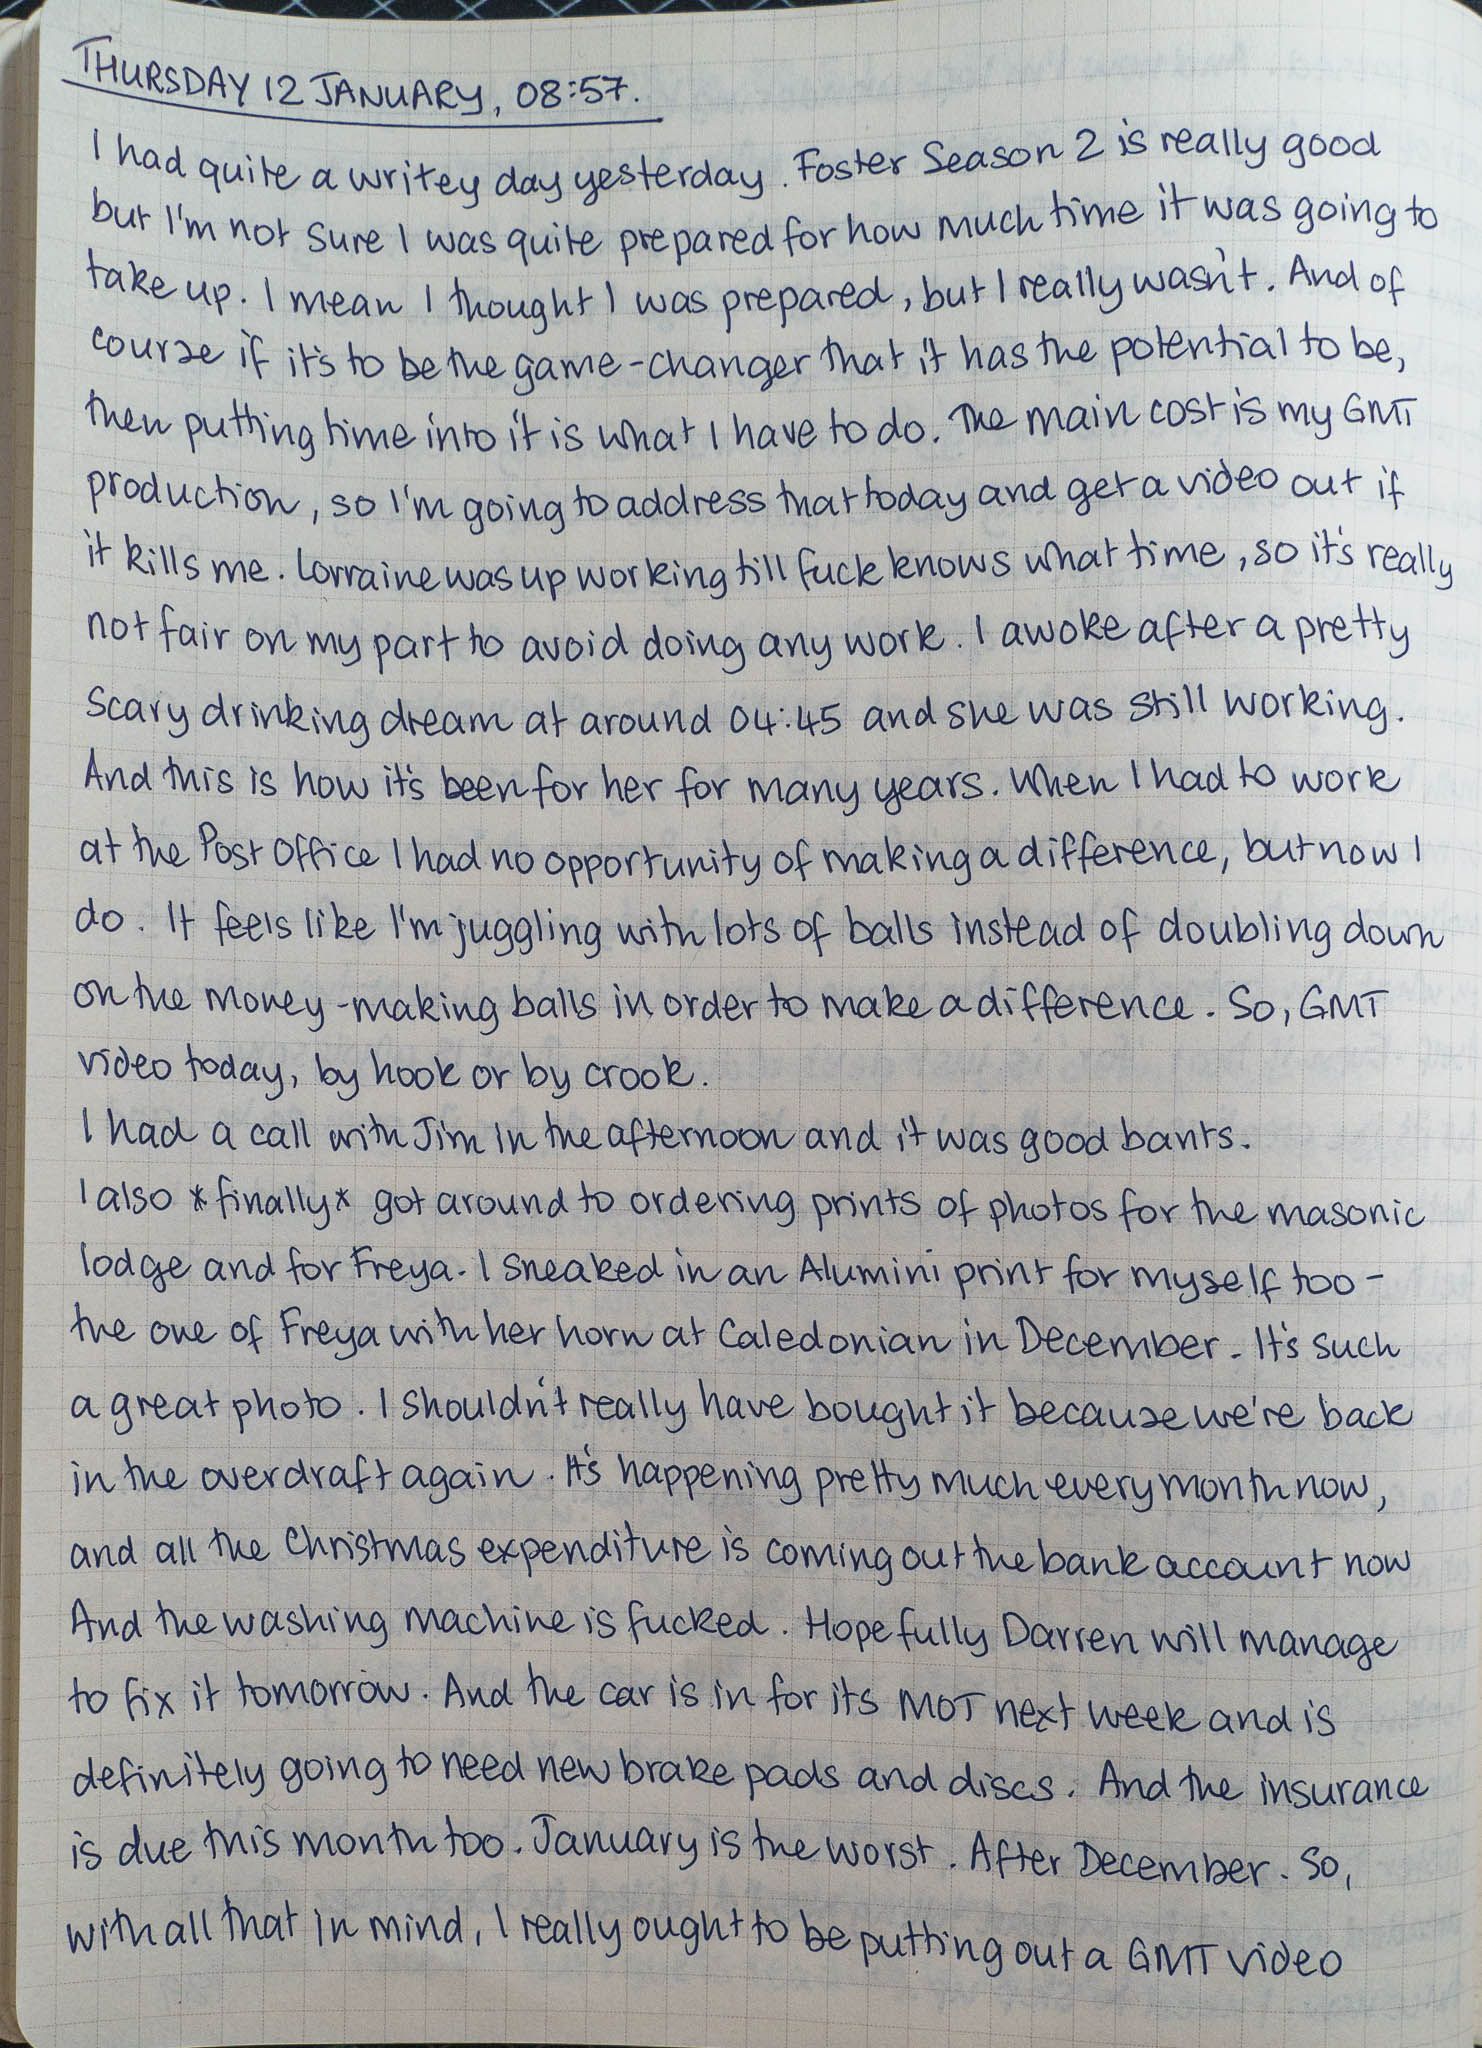 THURSDAY 12 JANUARY, 08:57.
I had quite a writey day yesterday. Foster Season 2 is really good
but I'm not sure I was quite prepared for how much time it was going to
take up. I mean I thought I was prepared, but I really wasn't. And of
course if it's to be the game-changer that it has the potential to be,
then putting time into it is what I have to do. The main cost is my GMT
production, so I'm going to address that today and get a video out if
it kills me. Lorraine was up working till fuck knows what time, so it's really
not fair on my part to avoid doing any work. I awoke after a pretty
scary drinking dream at around 04:45 and she was still working.
And this is how it's been for her for many years. When I had to work
at the Post Office I had no opportunity of making a difference, but now I
do. It feels like I'm juggling with lots of balls instead of doubling down
on the money-making balls in order to make a difference. So, GMT
video today, by hook or by crook.
I had a call with Jim in the afternoon and it was good bants.
I also *finally* got around to ordering prints of photos for the masonic
lodge and for Freya. I sneaked in an Alumini print for myself too -
the one of Freya with her horn at Caledonian in December. It's such
a great photo. I shouldn't really have bought it because we're back
in the overdraft again. It's happening pretty much every month now,
and all the Christmas expenditure is coming out the bank account now
And the washing machine is fucked. Hopefully Darren will manage
to fix it tomorrow. And the car is in for its MOT next week and is
definitely going to need new brake pads and discs. And the insurance
is due this month too. January is the worst. After December. So,
with all that in mind, I really ought to be putting out a GMT video